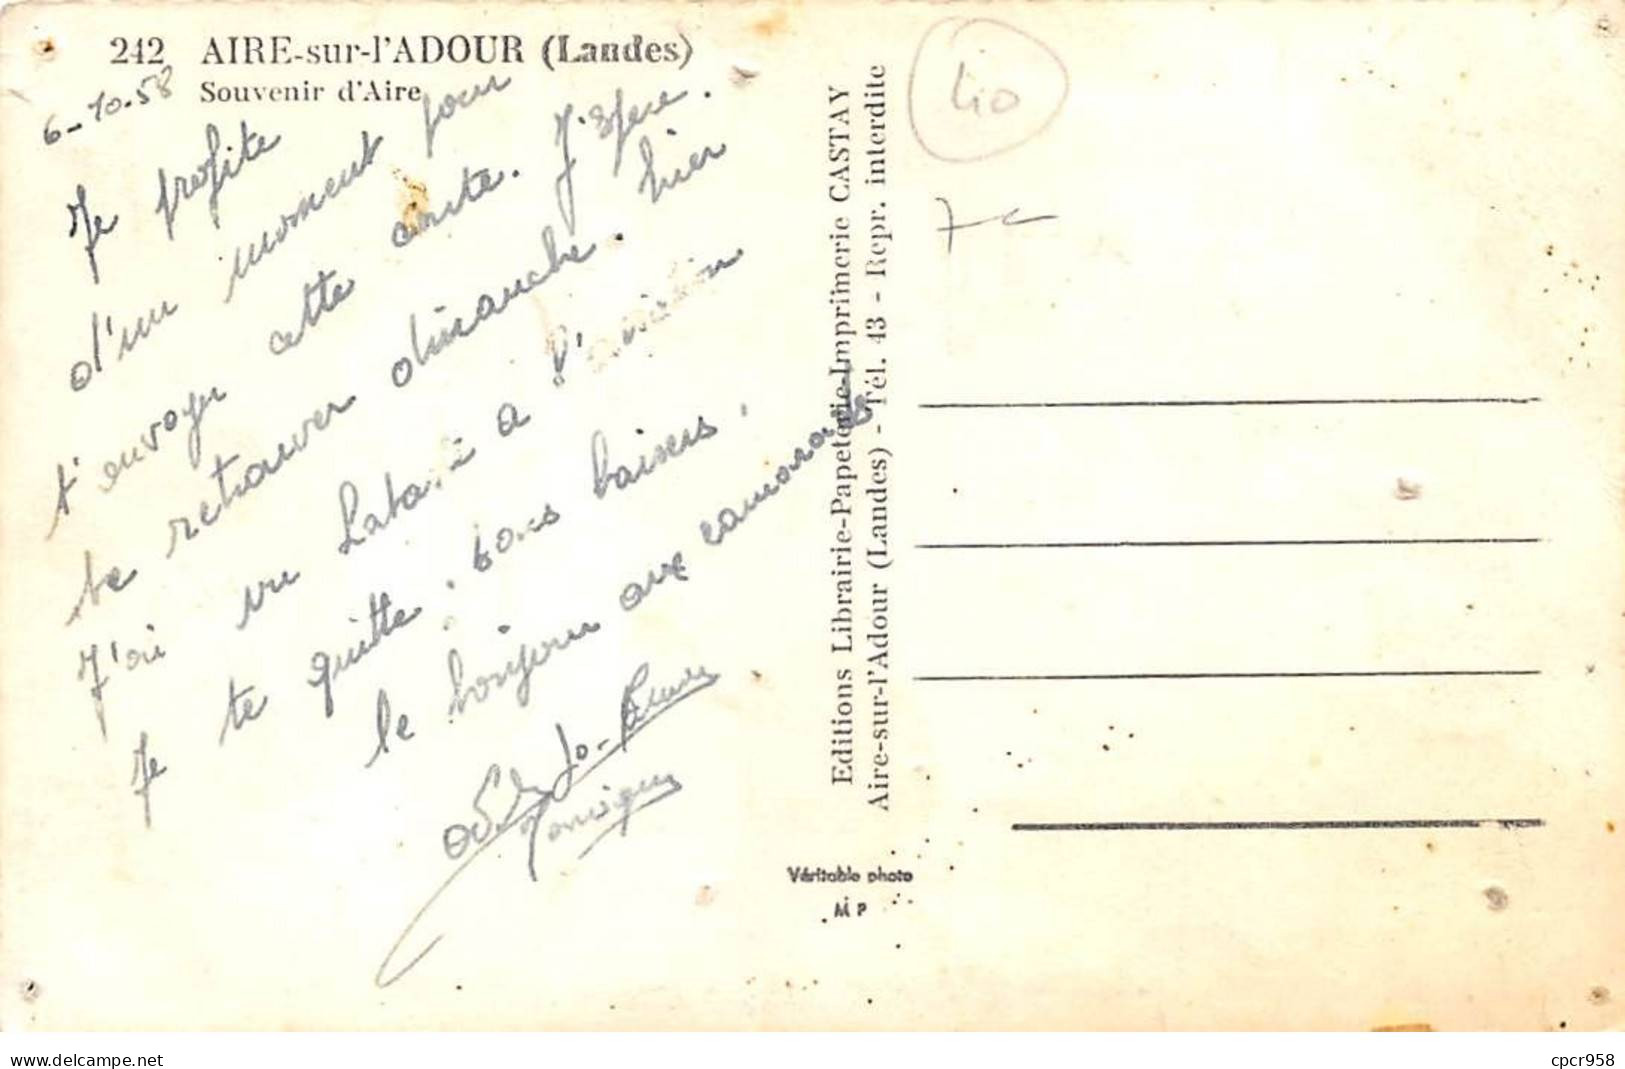 242 AIRE-sur-l'ADOUR (Landes)
Souvenir d'Aire
6-10-58
Je profite
d'un moment pour
t'envoyer cette carte. J'espère
te retrouver dimanche. hier
J'ai vu à l'aviation
Je te quitte. bons baisers.
le bonjour aux camarades
Editions Librairie-Papeterie-Imprimerie CASTAY
Aire-sur-l'Adour (Landes) - Tél. 43 - Repr. interdite
40
7-
Véritable photo
M P
www.delcampe.net
cpcr958